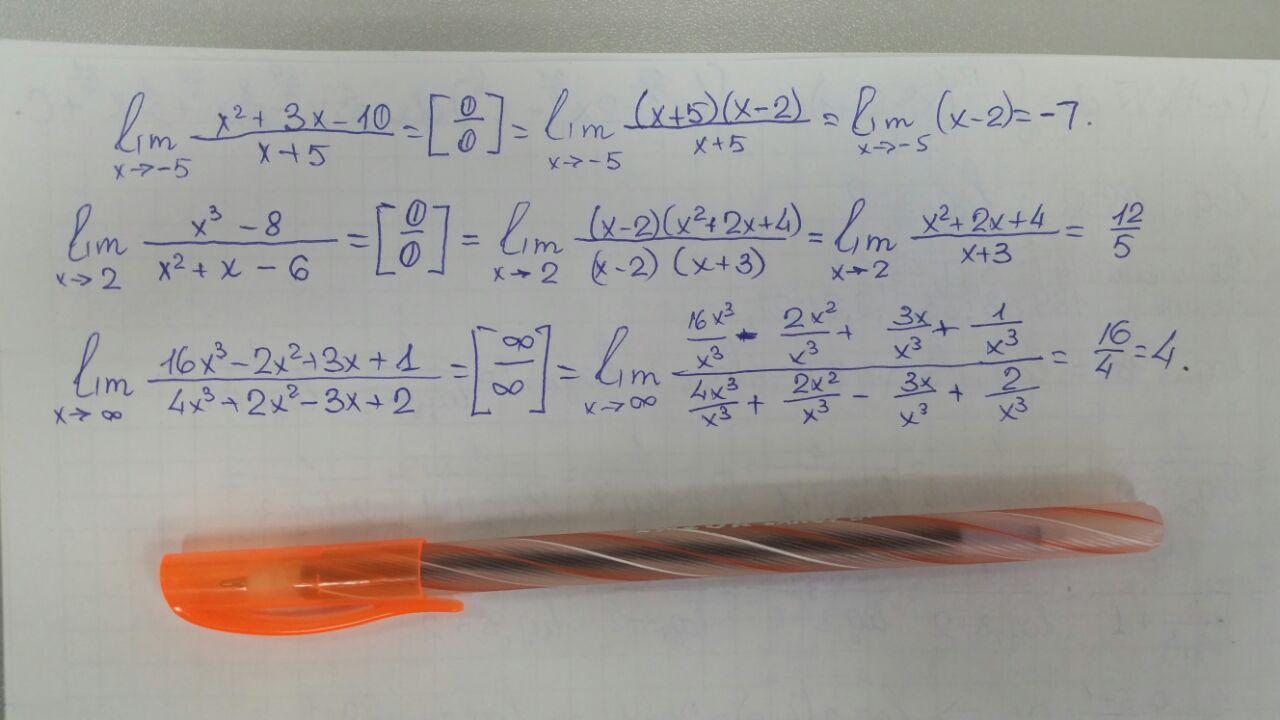 lim x→-5 (x² + 3x - 10)/(x + 5) = [0/0] = lim x→-5 ((x+5)(x-2))/(x+5) = lim x→-5 (x-2) = -7.
lim x→2 (x³ - 8)/(x² + x - 6) = [0/0] = lim x→2 ((x-2)(x²+2x+4))/((x-2)(x+3)) = lim x→2 (x²+2x+4)/(x+3) = 12/5
lim x→∞ (16x³ - 2x² + 3x + 1)/(4x³ + 2x² - 3x + 2) = [∞/∞] = lim x→∞ (16x³/x³ - 2x²/x³ + 3x/x³ + 1/x³)/(4x³/x³ + 2x²/x³ - 3x/x³ + 2/x³) = 16/4 = 4.